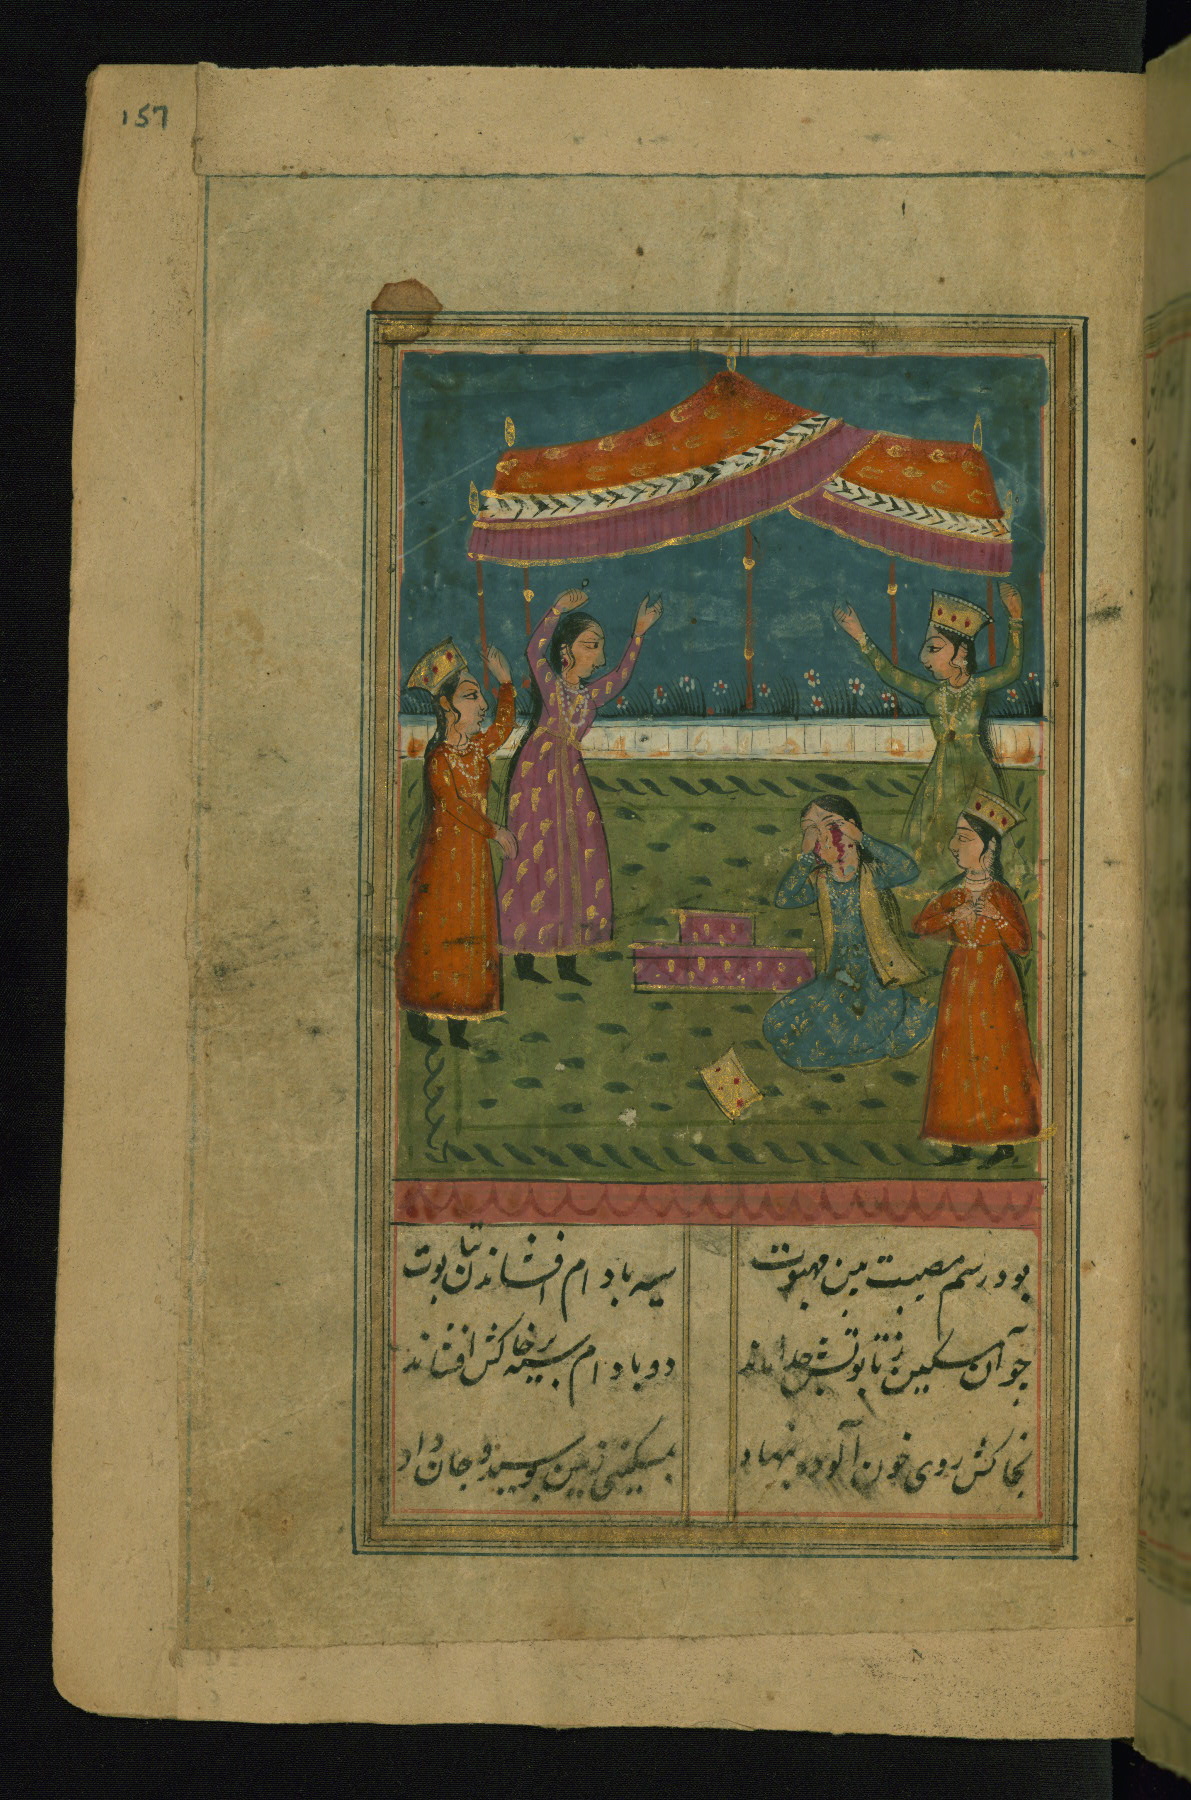 157
بود رسم مصیبت بین مهبوت سیه بادام افشاندن بتابوت
چو آن مسکین ز تابوتش جدا ماند دو بادام سیه بر خاکش افشاند
بخاکش روی خون آلود بنهاد بمسکینی زمین بوسید و جان داد